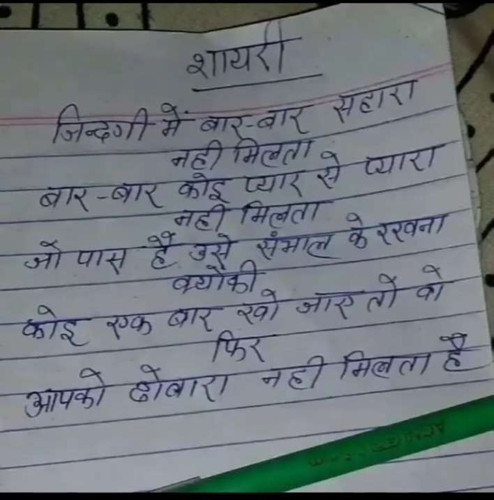 शायरी
जिन्दगी में बार-बार सहारा
नही मिलता
बार-बार कोई प्यार से प्यारा
नही मिलता
जो पास हैं उसे संभाल के रखना
क्योंकी
कोइ एक बार खो जाए तो वो
फिर
आपको दोबारा नही मिलता है